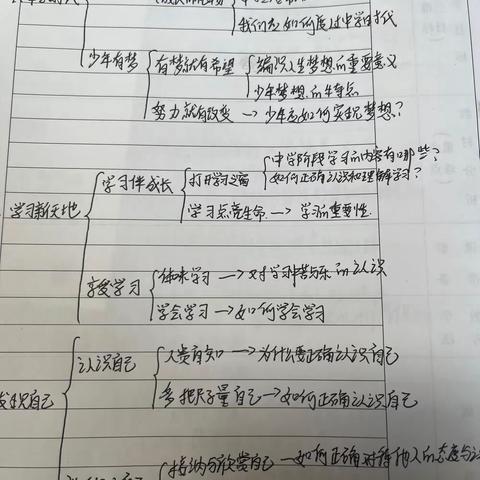 我们应如何度过中学时代
少年有梦
有梦就有希望
编织人生梦想的重要意义
少年梦想的特点
努力就有改变 → 少年应如何实现梦想?
学习新天地
学习伴成长
打开学习之窗
中学阶段学习的内容有哪些?
如何正确认识和理解学习?
学习点亮生命 → 学习的重要性.
享受学习
体味学习 → 对学习中苦与乐的认识
学会学习 → 如何学会学习
发现自己
认识自己
人贵自知 → 为什么要正确认识自己
多把尺子量自己 → 如何正确认识自己
接纳与欣赏自己 → 如何正确对待他人的态度与